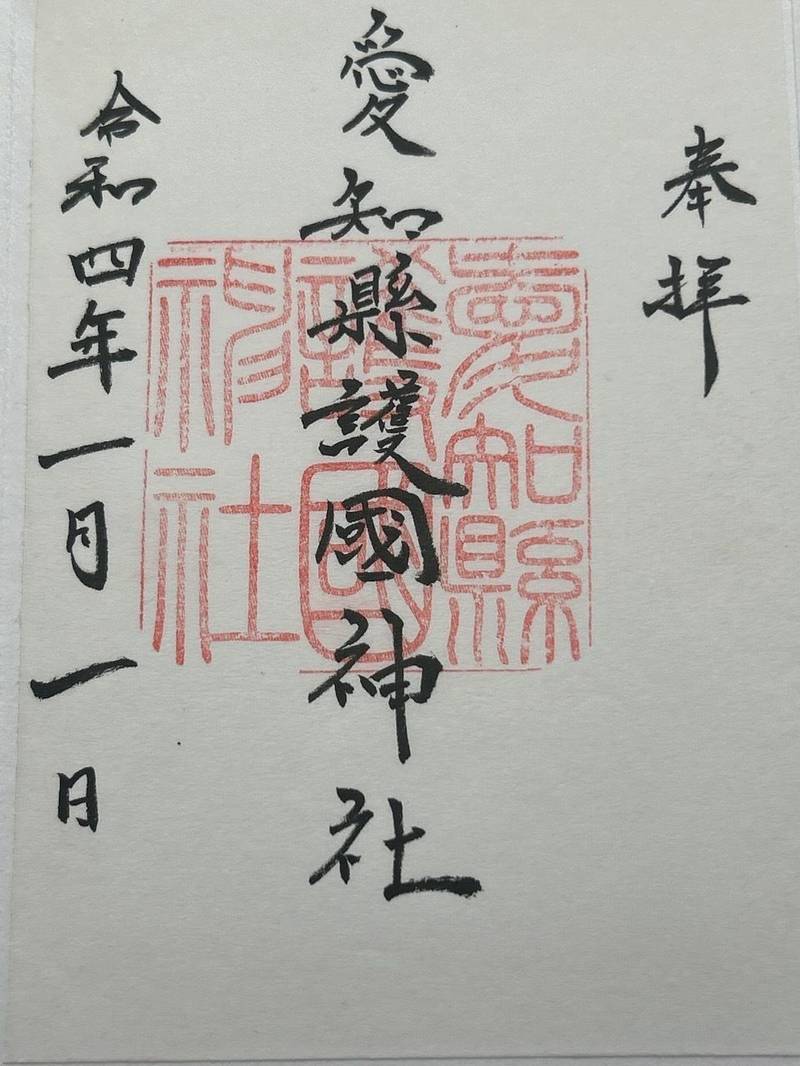 奉拝
愛知縣護國神社
令和四年一月一日
愛知縣
護國
神社